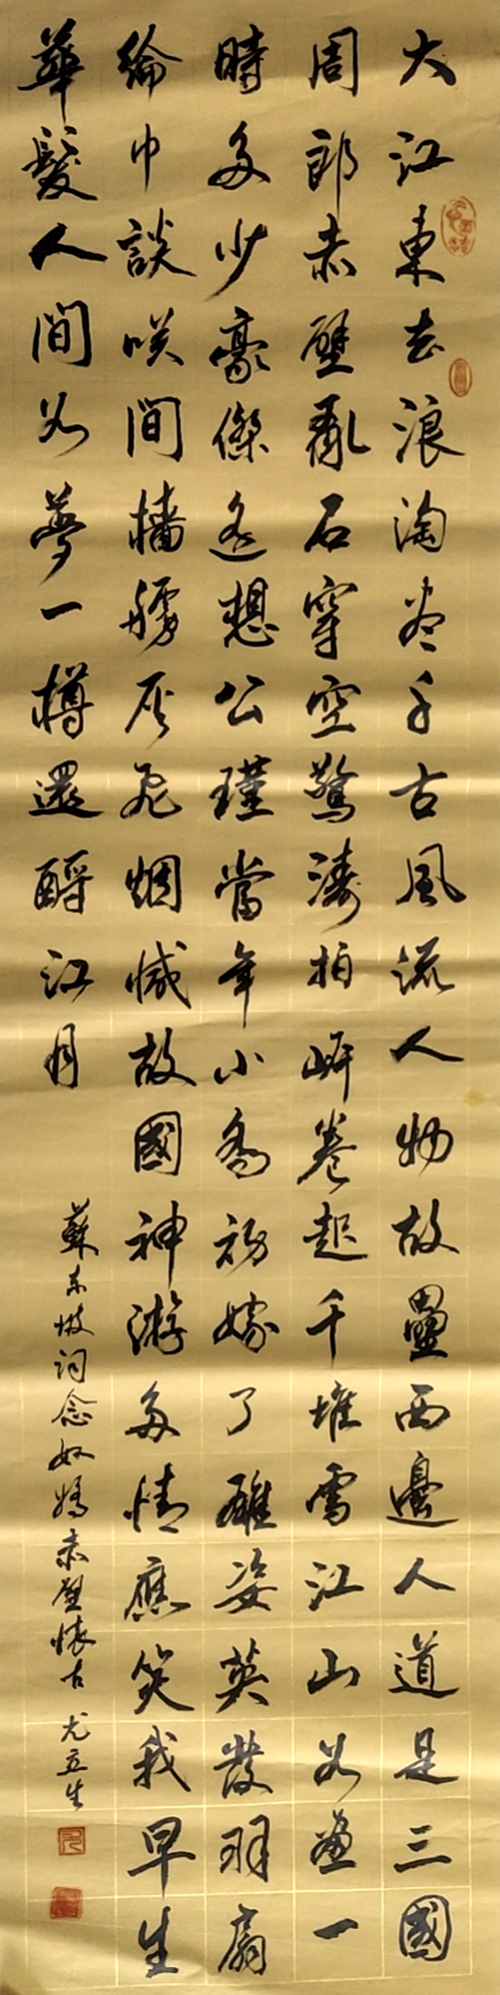 大江東去浪淘盡千古風流人物故壘西邊人道是三國
周郎赤壁亂石穿空驚濤拍岸卷起千堆雪江山如畫一
時多少豪傑遙想公瑾當年小喬初嫁了雄姿英發羽扇
綸巾談咲間檣艣灰飛烟滅故國神游多情應笑我早生
華髮人間如夢一樽還酹江月
蘇東坡詞念奴嬌赤壁懷古 尤五生